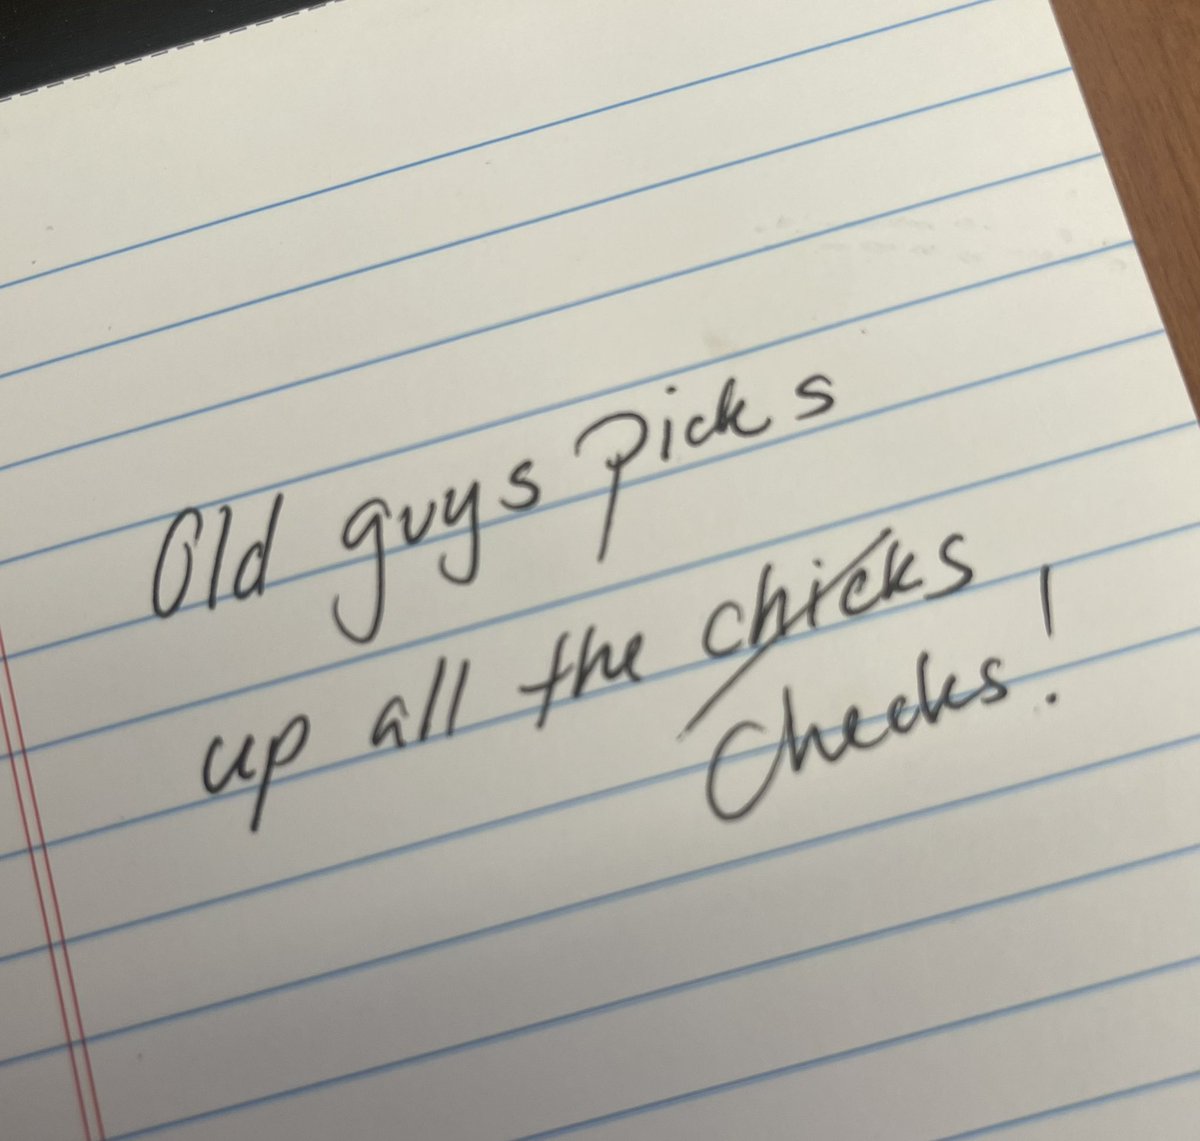 Old guys picks
up all the chicks
checks!